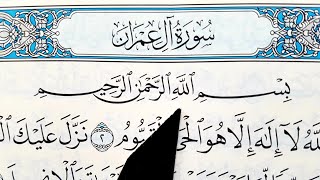 سُورَةُ آلِ عِمْرَانَ
بِسْمِ اللَّهِ الرَّحْمَٰنِ الرَّحِيمِ
اللَّهُ لَا إِلَٰهَ إِلَّا هُوَ الْحَيُّ الْقَيُّومُ ٢ نَزَّلَ عَلَيْكَ